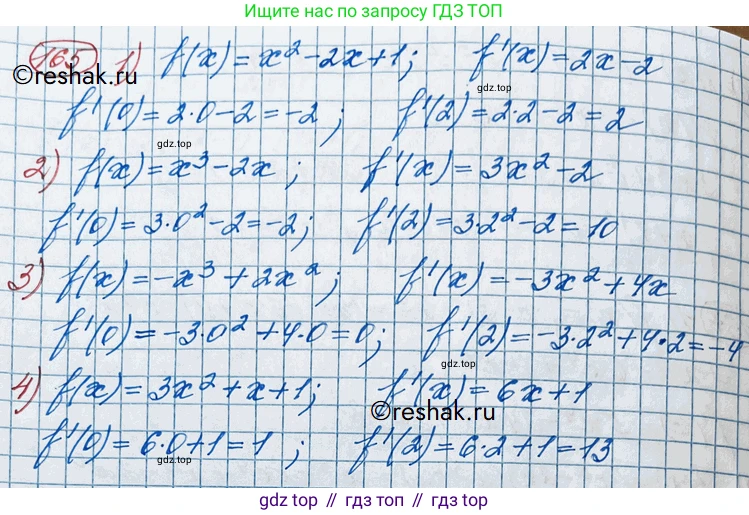 Ищите нас по запросу ГДЗ ТОП
165 1) f(x) = x² - 2x + 1; f'(x) = 2x - 2
©reshak.ru
gdz.top
f'(0) = 2·0 - 2 = -2; f'(2) = 2·2 - 2 = 2
gdz.top
2) f(x) = x³ - 2x; f'(x) = 3x² - 2
gdz.top
f'(0) = 3·0² - 2 = -2; f'(2) = 3·2² - 2 = 10
gdz.top
3) f(x) = -x³ + 2x²; f'(x) = -3x² + 4x
f'(0) = -3·0² + 4·0 = 0; f'(2) = -3·2² + 4·2 = -4
gdz.top
4) f(x) = 3x² + x + 1; f'(x) = 6x + 1
©reshak.ru
f'(0) = 6·0 + 1 = 1; f'(2) = 6·2 + 1 = 13
gdz.top
gdz top // гдз топ // gdz top // гдз топ // gdz top